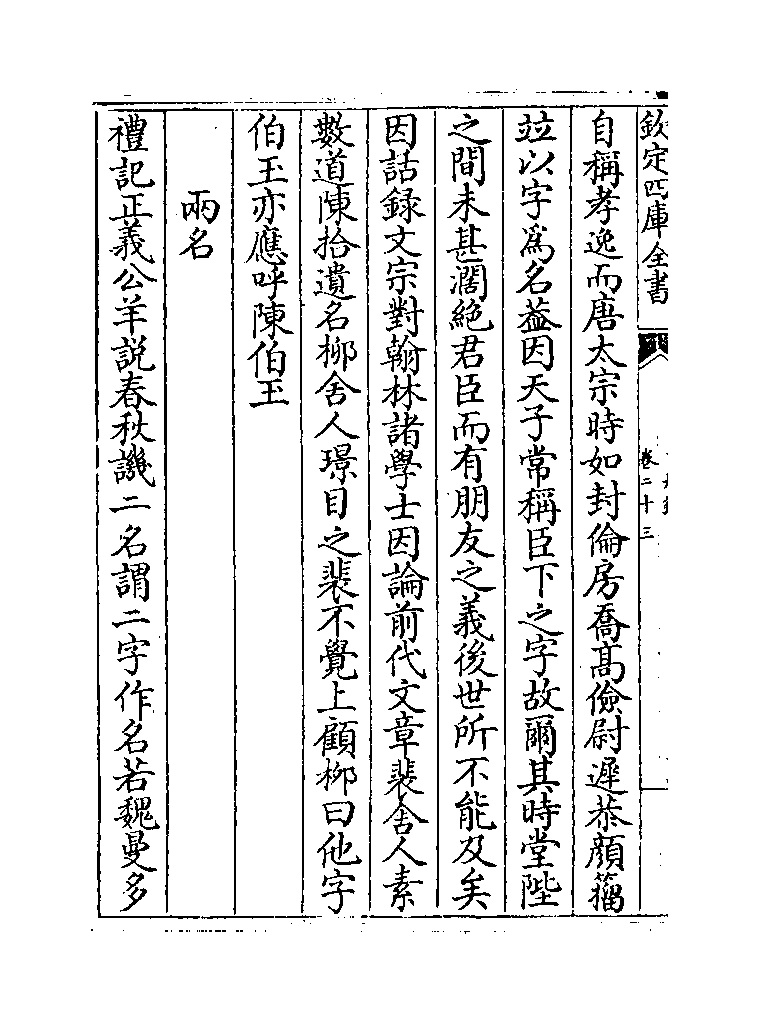 欽定四庫全書
卷二十三
自稱孝逸而唐太宗時如封倫房喬髙儉尉遲恭顔籀
竝以字爲名葢因天子常稱臣下之字故爾其時堂陛
之間未甚濶絶君臣而有朋友之義後世所不能及矣
因話録文宗對翰林諸學士因論前代文章裴舍人素
數道陳拾遺名柳舍人璟目之裴不覺上顧柳曰他字
伯玉亦應呼陳伯玉
兩名
禮記正義公羊説春秋譏二名謂二字作名若魏曼多